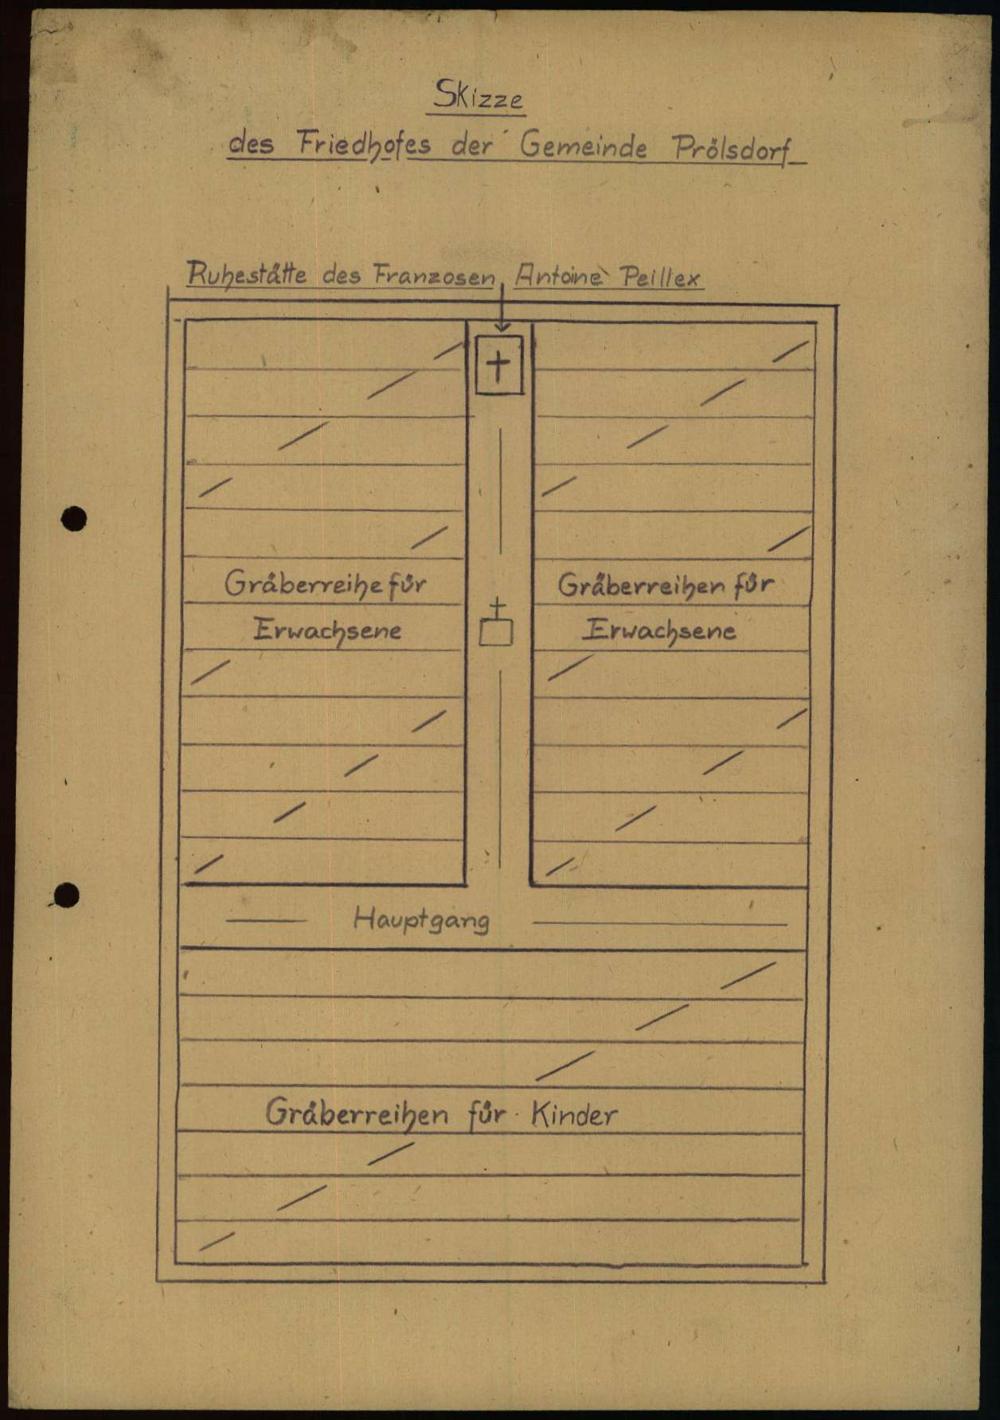 Skizze
des Friedhofes der Gemeinde Prölsdorf
Ruhestätte des Franzosen Antoine Peillex
Gräberreihe für
Erwachsene
Gräberreihen für
Erwachsene
Hauptgang
Gräberreihen für Kinder